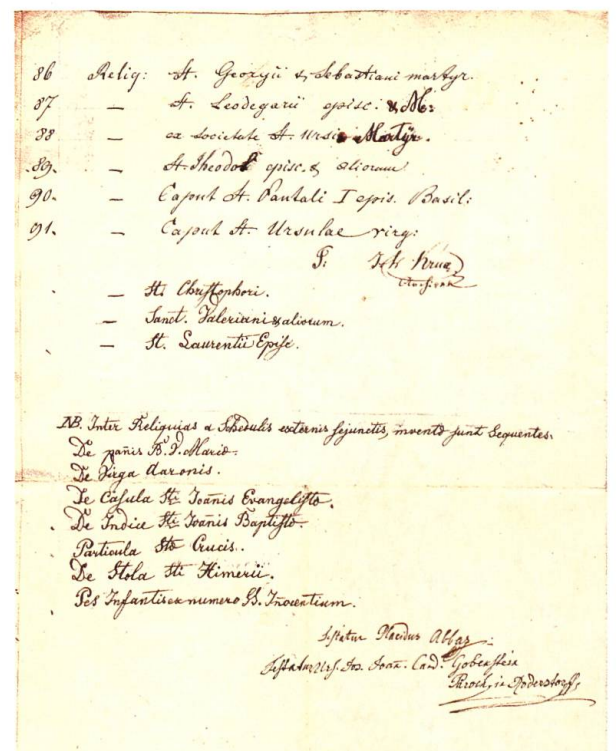 86 Reliq: St. Georgii & Sebastiani martyr.
87 — St. Leodegarii episc: & M:
88 — ex societate St. Ursi Martÿr.
89. — St. Theodol episc. & aliorum
90. — Caput St. Pantali I epis. Basil:
91. — Caput St. Ursulae virg:
— St. Christophori.
— Sanct. Valeriani & aliorum.
— St. Laurentii Episc.
NB. Inter Reliquias a Schedulis externis sejunctis, inventæ sunt Sequentes.
De pañis B. V. Mariæ.
De Virga Aaronis.
De Casula Sti Joañis Evangelistæ.
De Indice Sti Joañis Baptistæ.
Particula Stæ Crucis.
De Stola Sti Himerii.
Pes Infantis ex numero SS. Inocentium.
testatur Placidus Abbas:
testatur Urs. Jos. Joan. Cand. Gobenstein
Paroch. in Roderstorf